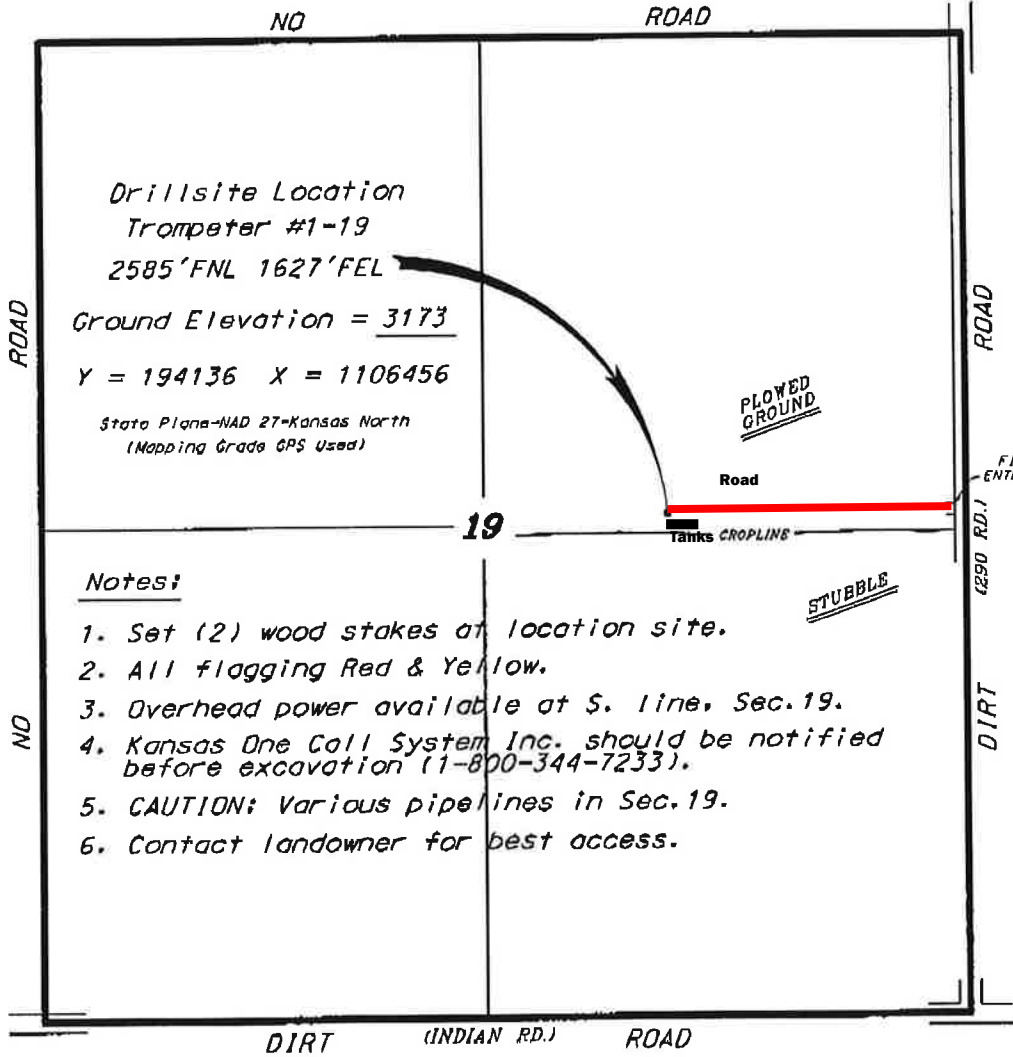 NO ROAD
Drillsite Location
Trompeter #1-19
2585'FNL 1627'FEL
Ground Elevation = 3173
Y = 194136 X = 1106456
State Plane-NAD 27-Kansas North
(Mapping Grade GPS Used)
ROAD
NO
ROAD
PLOWED
GROUND
Road
(290 RD.)
19
Tanks CROPLINE
STUBBLE
DIRT
Notes:
1. Set (2) wood stakes at location site.
2. All flagging Red & Yellow.
3. Overhead power available at S. line, Sec.19.
4. Kansas One Call System Inc. should be notified
before excavation (1-800-344-7233).
5. CAUTION: Various pipelines in Sec.19.
6. Contact landowner for best access.
DIRT (INDIAN RD.) ROAD